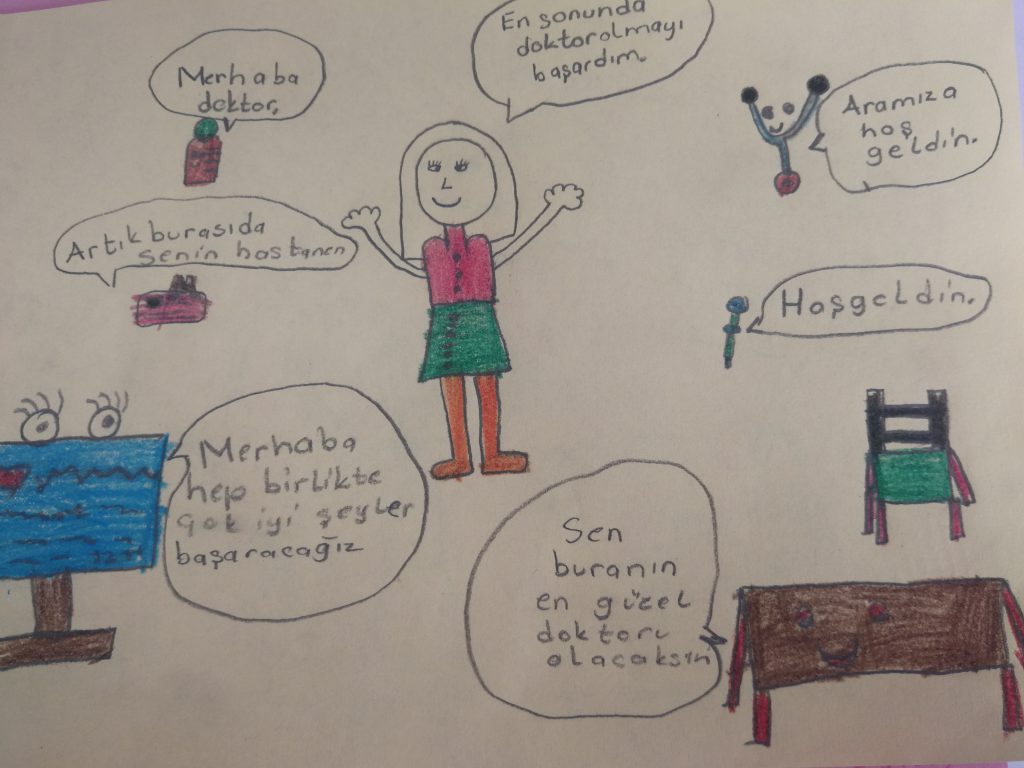 En sonunda
doktor olmayı
başardım.
Merhaba
doktor,
Aramıza
hoş
geldin.
Artık burasıda
senin hastanen
Hoşgeldin.
Merhaba
hep birlikte
çok iyi şeyler
başaracağız
Sen
buranın
en güzel
doktoru
olacaksın